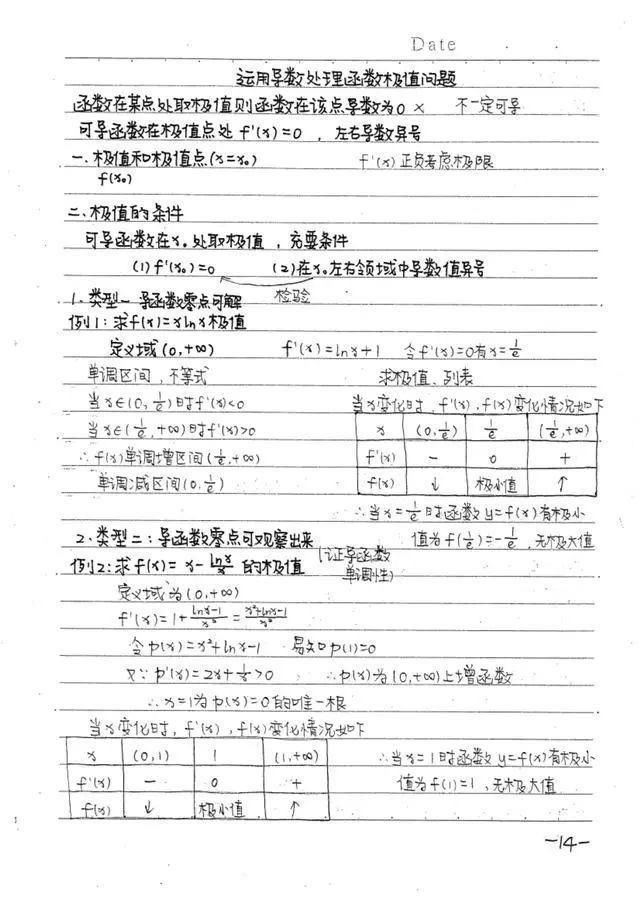 Date
运用导数处理函数极值问题
函数在某点处取极值则函数在该点导数为0 × 不一定可导
可导函数在极值点处 f'(x)=0 , 左右导数异号
一. 极值和极值点(x=x₀) f'(x)正负考虑极限
f(x₀)
二. 极值的条件
可导函数在x₀处取极值 , 充要条件
(1) f'(x₀)=0 (2)在x₀左右领域中导数值异号
检验
1. 类型一 导函数零点可解
例1: 求f(x)=xlnx极值
定义域(0,+∞) f'(x)=lnx+1 令f'(x)=0有x=1/e
单调区间, 不等式 求极值、列表
当x∈(0, 1/e)时f'(x)<0 当x变化时, f'(x), f(x)变化情况如下
当x∈(1/e, +∞)时f'(x)>0 x (0,1/e) 1/e (1/e,+∞)
∴f(x)单调增区间(1/e,+∞) f'(x) − 0 +
单调减区间(0,1/e) f(x) ↓ 极小值 ↑
∴当x=1/e时函数y=f(x)有极小
值为f(1/e)=-1/e, 无极大值
2. 类型二: 导函数零点可观察出来
(证导函数
单调性)
例2: 求f(x)= x-lnx/x 的极值
定义域为(0,+∞)
f'(x)=1+(lnx-1)/x²=(x²+lnx-1)/x²
令p(x)=x²+lnx-1 易知p(1)=0
又∵p'(x)=2x+1/x>0 ∴p(x)为(0,+∞)上增函数
∴x=1为p(x)=0的唯一根
当x变化时, f'(x), f(x)变化情况如下
x (0,1) 1 (1,+∞) ∴当x=1时函数y=f(x)有极小
f'(x) − 0 + 值为f(1)=1, 无极大值
f(x) ↓ 极小值 ↑
-14-